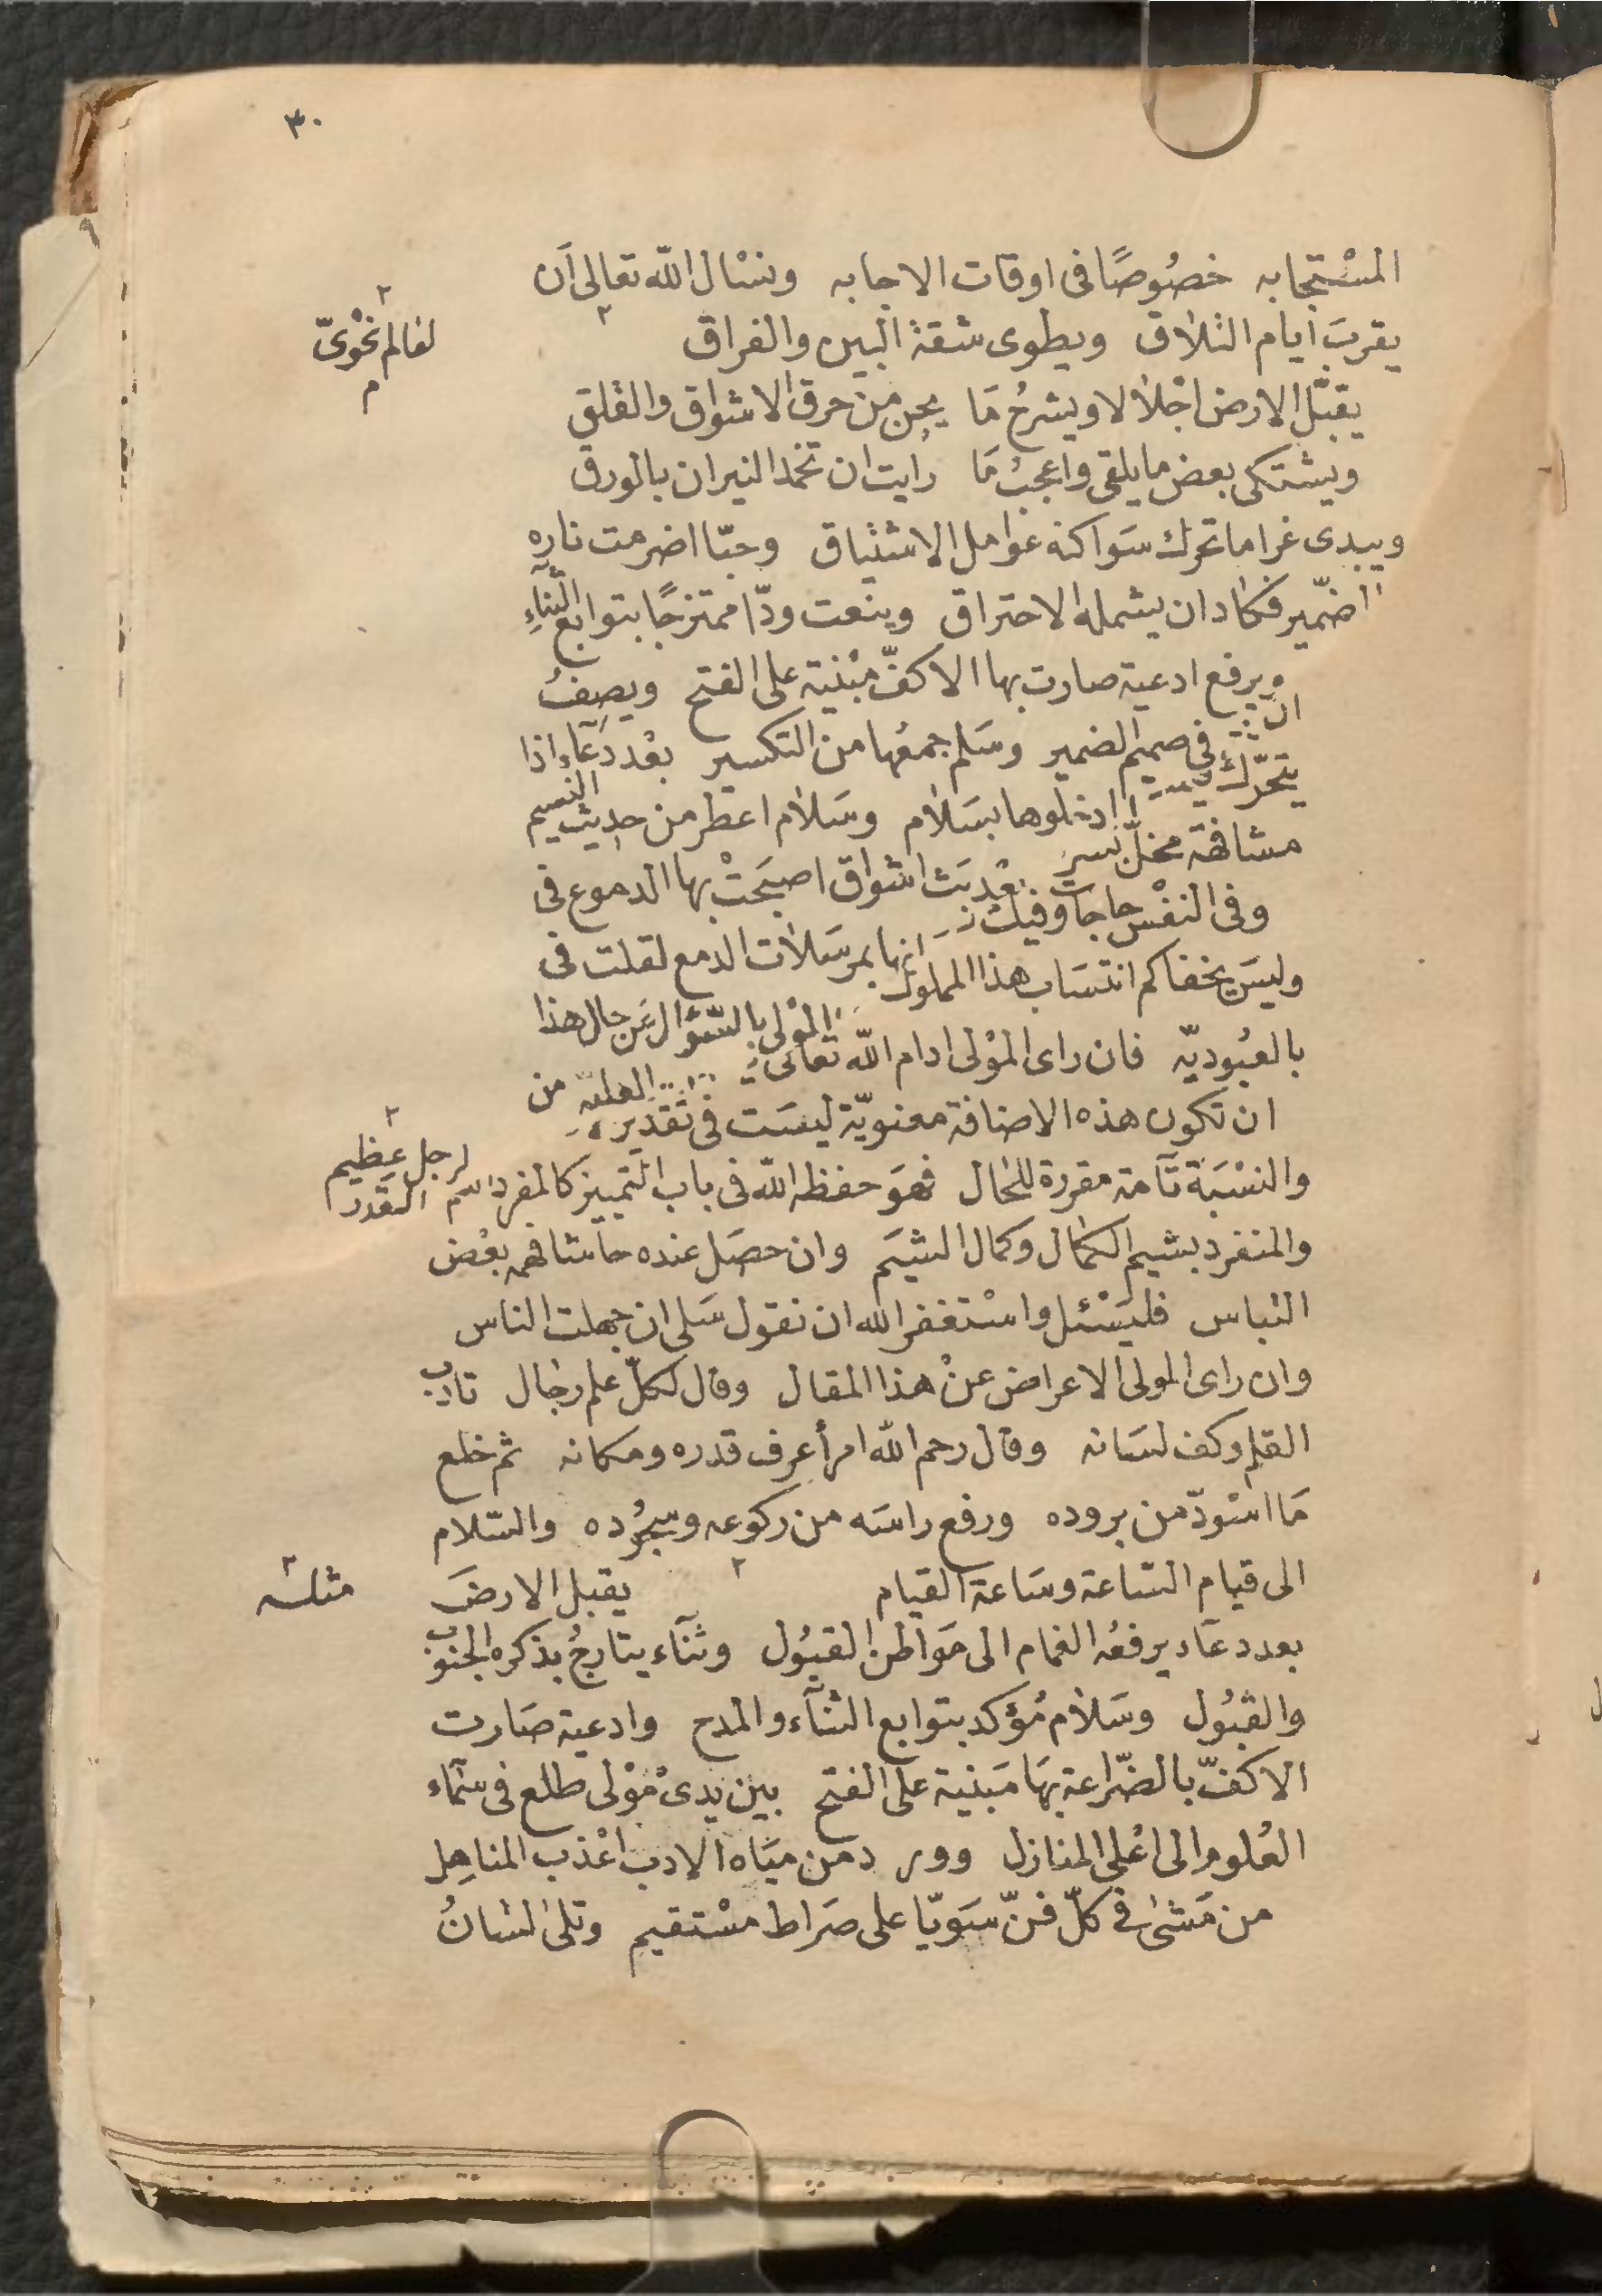 ٣٠
المسْتجابه خصُوصًا فى اوقات الاجابه ونسْال اللّه تعالى اَن
يقربَ ايام التلاق ويطوى شقة البين والفراق
لعالم نحْوىّ
يقبّل الارض اجْلالا ويشرحُ مَا يجن من حرق الاشواق والقلق
ويشتكى بعض ما يلقى واعجبُ مَا رايت ان تخمد النيران بالورق
ويبدى غراما تحرك سَواكنه عوامل الاشتياق وحبّا اضرمت ناره
الضّمير فكاد ان يشمله الاحتراق وينعت ودّا ممتزجًا بتوابع الثناءِ
ويرفع ادعية صارت بها الاكفّ مبْنية على الفتح ويصِفُ
فى صميم الضمير وسَلم جمعُها من التكسير بعْد دعَاء اذا
يتحرّك
ادخلوها بسَلام وسَلام اعطر من حديث النسيم
مشافهة مخلّ
بعْد بَث اشواق اصبحَتْ بها الدموع فى
وفى النفْس حاجات وفيك
انها بمرسَلات الدمع لقلت فى
وليسَ يخفاكم انتسَاب هذا المملوك
المْولى بالسّؤال عَن حال هذا
بالعبُوديّه فان راى الموْلى ادام اللّه تعالى
من
ان تكون هذه الاضافة معنويّة ليسَت فى تقدير
لرجل عظيم القدر
والنسْبَة تآمة مقررة للحال فهوَ حفظه اللّه فى باب التمييز كالمفرد
والمنفرد بشيم الكمال وكمال الشيَم وان حصَل عنده حاشا فهمه بعْض
التباس فليسْئل واسْتغفر الله ان نقول سَلى ان جهلت الناس
وان راى المولى الاعراض عنْ هذا المقال وقال لكلّ علم رجال تادب
القلم وكف لسَانه وقال رحم اللّه امرأ عرف قدره ومكانه ثم خلع
مَا اسْودّ من بروده ورفع راسَه من ركوعه وسجُوده والسّلام
الى قيام السّاعة وسَاعة القيام يقبل الارضَ
مثله
بعدد عَاد يرفعُه الغمام الى مَواطن القبُول وثنآء يتارجُ بذكره الجنوب
والقبُول وسَلام مُؤكد بتوابع الثنآء والمدح وادعية صَارت
الاكفّ بالضّراعة بهَا مَبنية على الفتح بين يدىْ موْلى طلع فى سَماء
العُلوم الى اعْلى المنازل وورد من ميَاه الادب اعْذب المناهِل
من مَشىٰ فى كلّ فنّ سَويّا على صَراط مسْتقيم وتلى لسَانُ